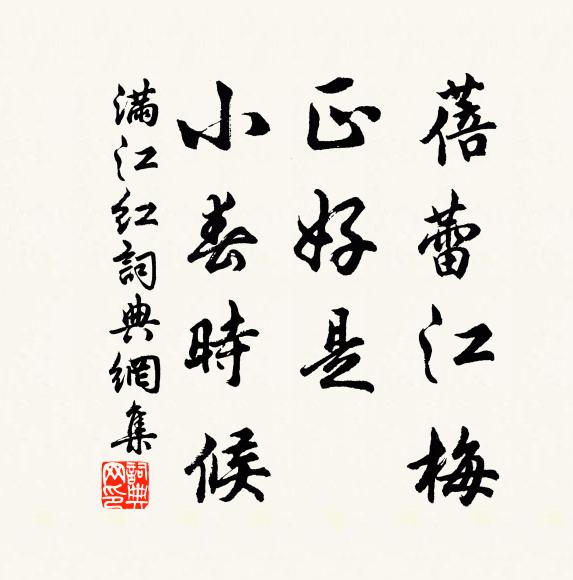 蓓蕾江梅
正好是
小春時候
滿江紅詞典網集
詞典
网印